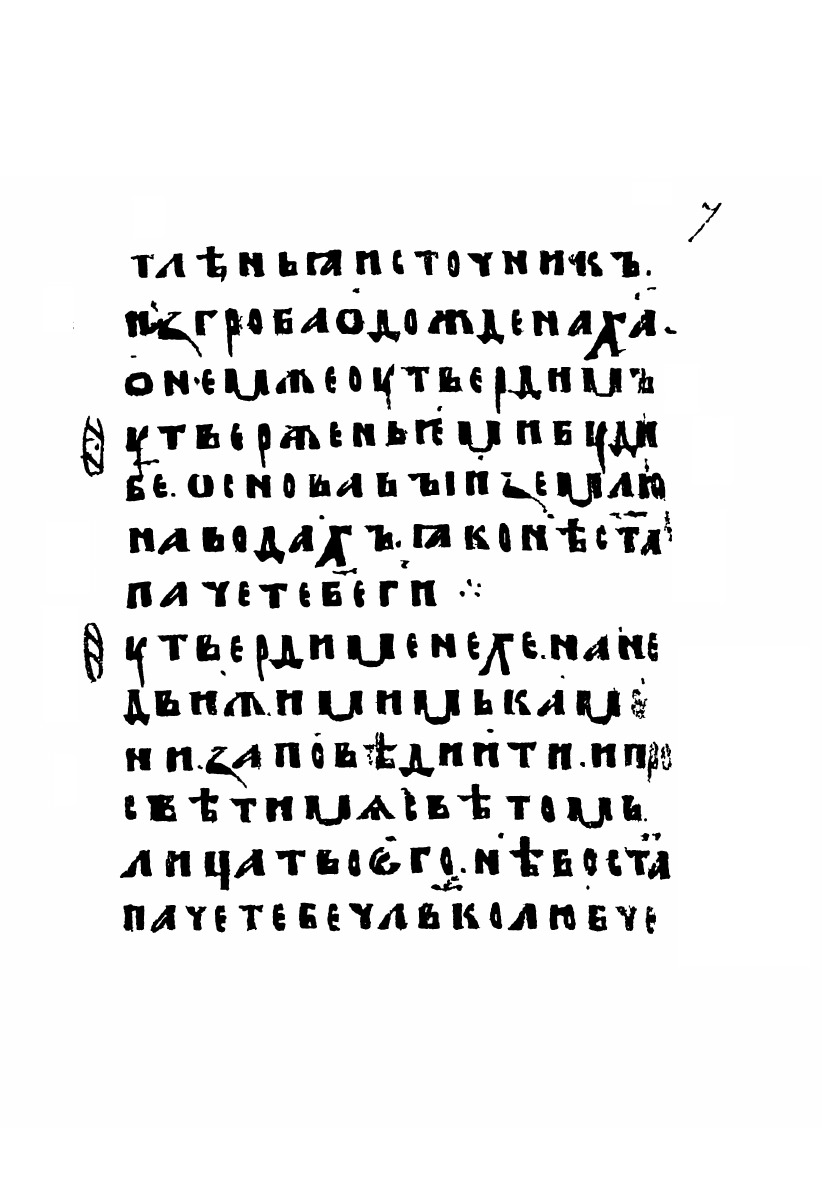 7
тлѣньꙗ источникъ.
из гроба одождена ха.
он·емже оутвердимъ
утверженье ми буди
бе. основавъıи землю
на водахъ. ꙗко нѣ ста
паче тебе ги ⁘
утверди мене хе. на не
движимимь каме
ни. заповѣдии ти. и про
свѣти мѧ свѣтомь
лица твоѥго. нѣ бо ста
паче тебе члвколюбче